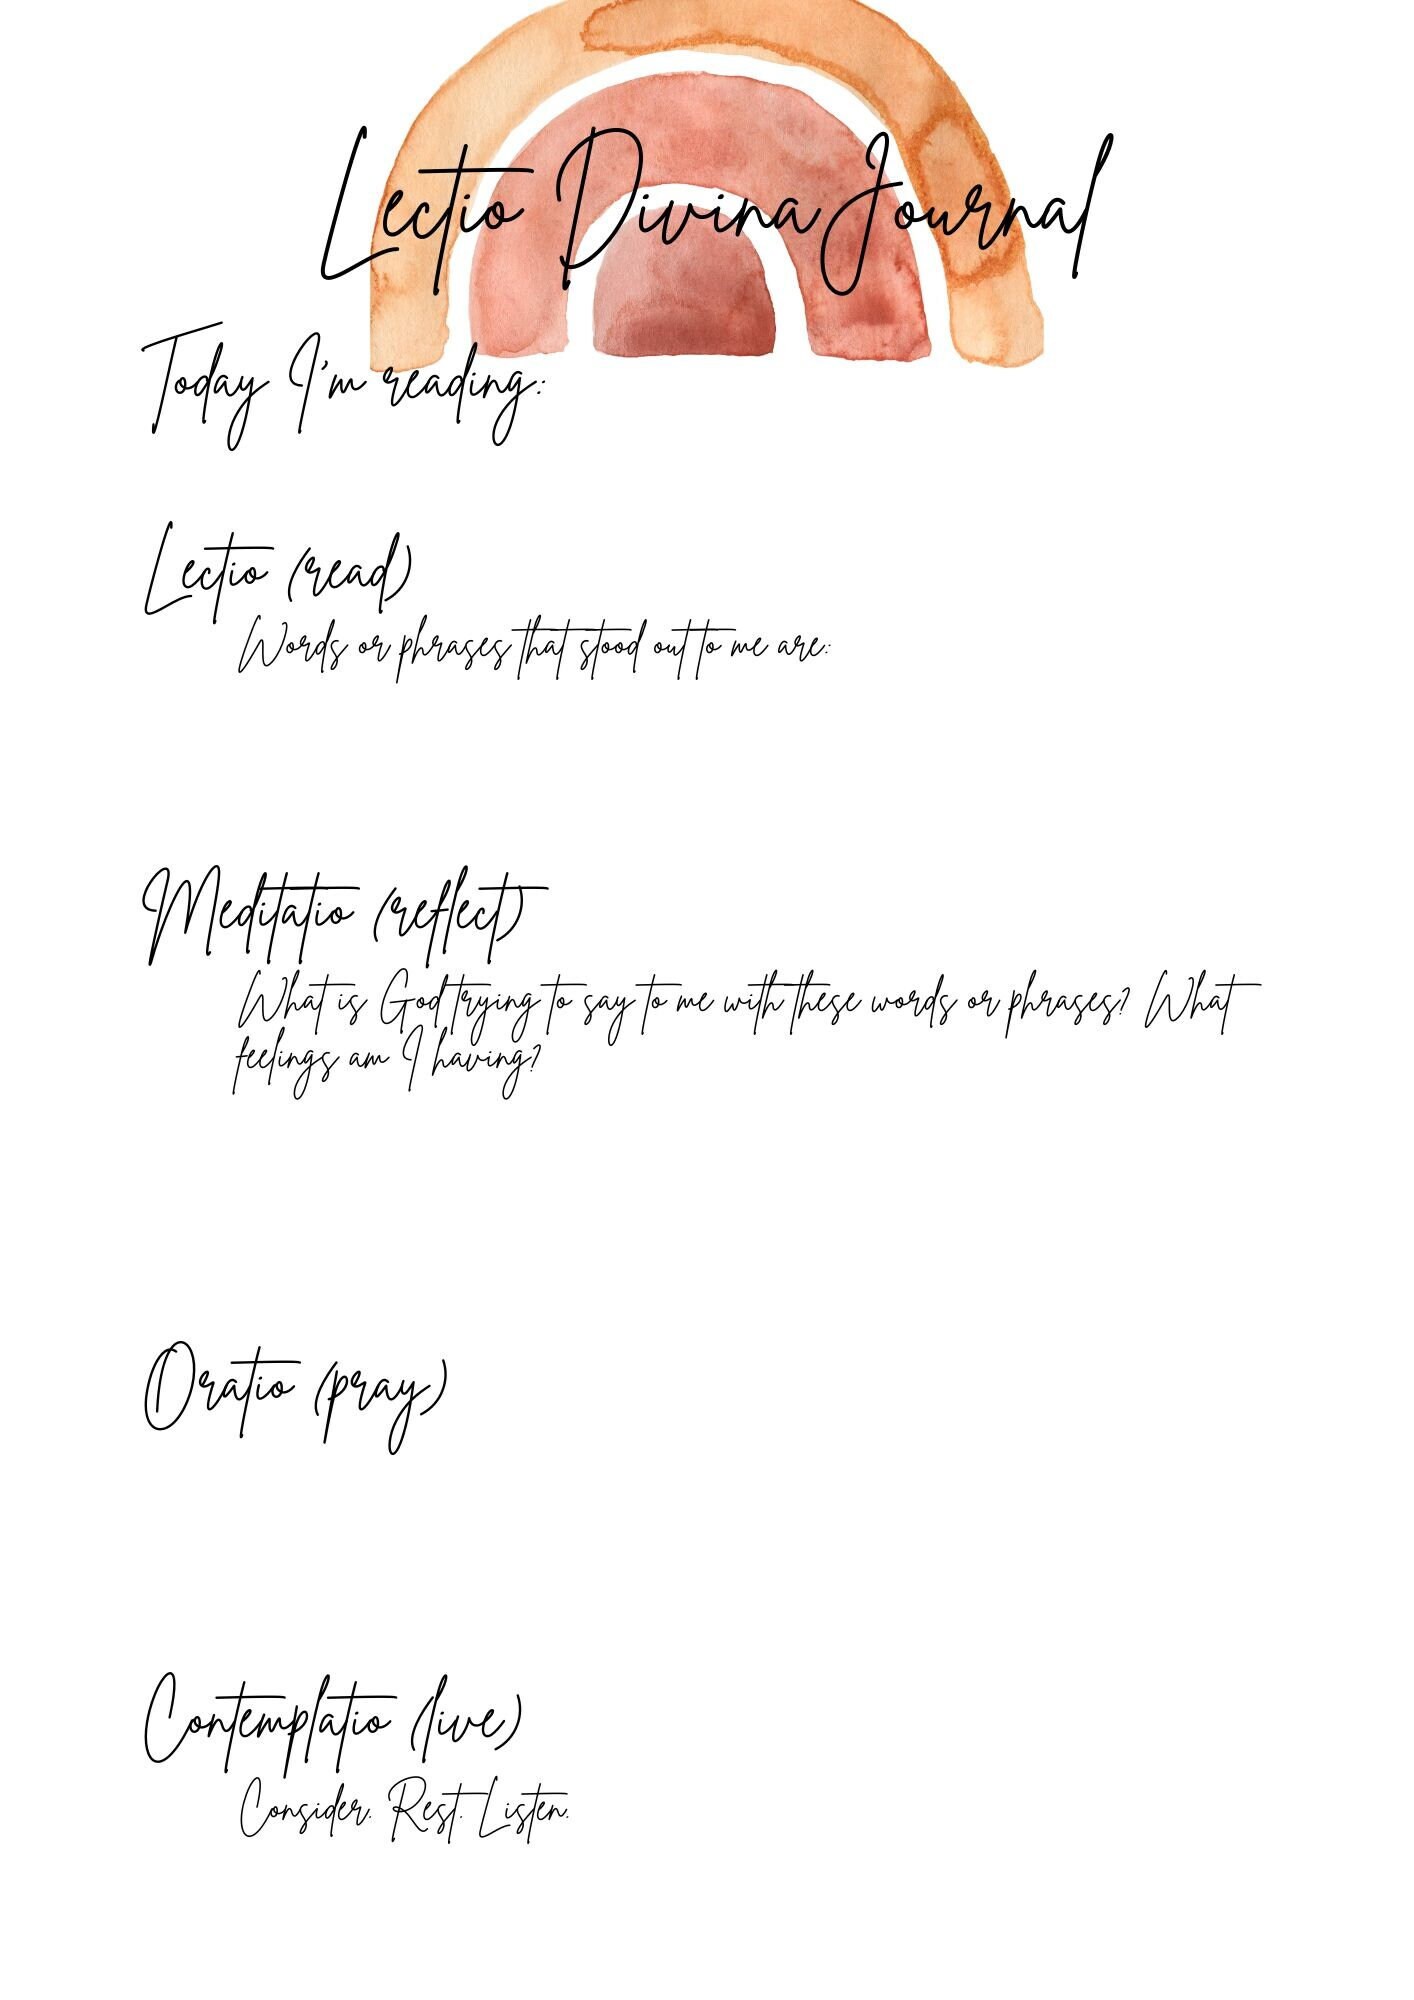 Lectio Divina Journal
Today I'm reading:
Lectio (read)
Words or phrases that stood out to me are:
Meditatio (reflect)
What is God trying to say to me with these words or phrases? What
feelings am I having?
Oratio (pray)
Contemplatio (live)
Consider. Rest. Listen.